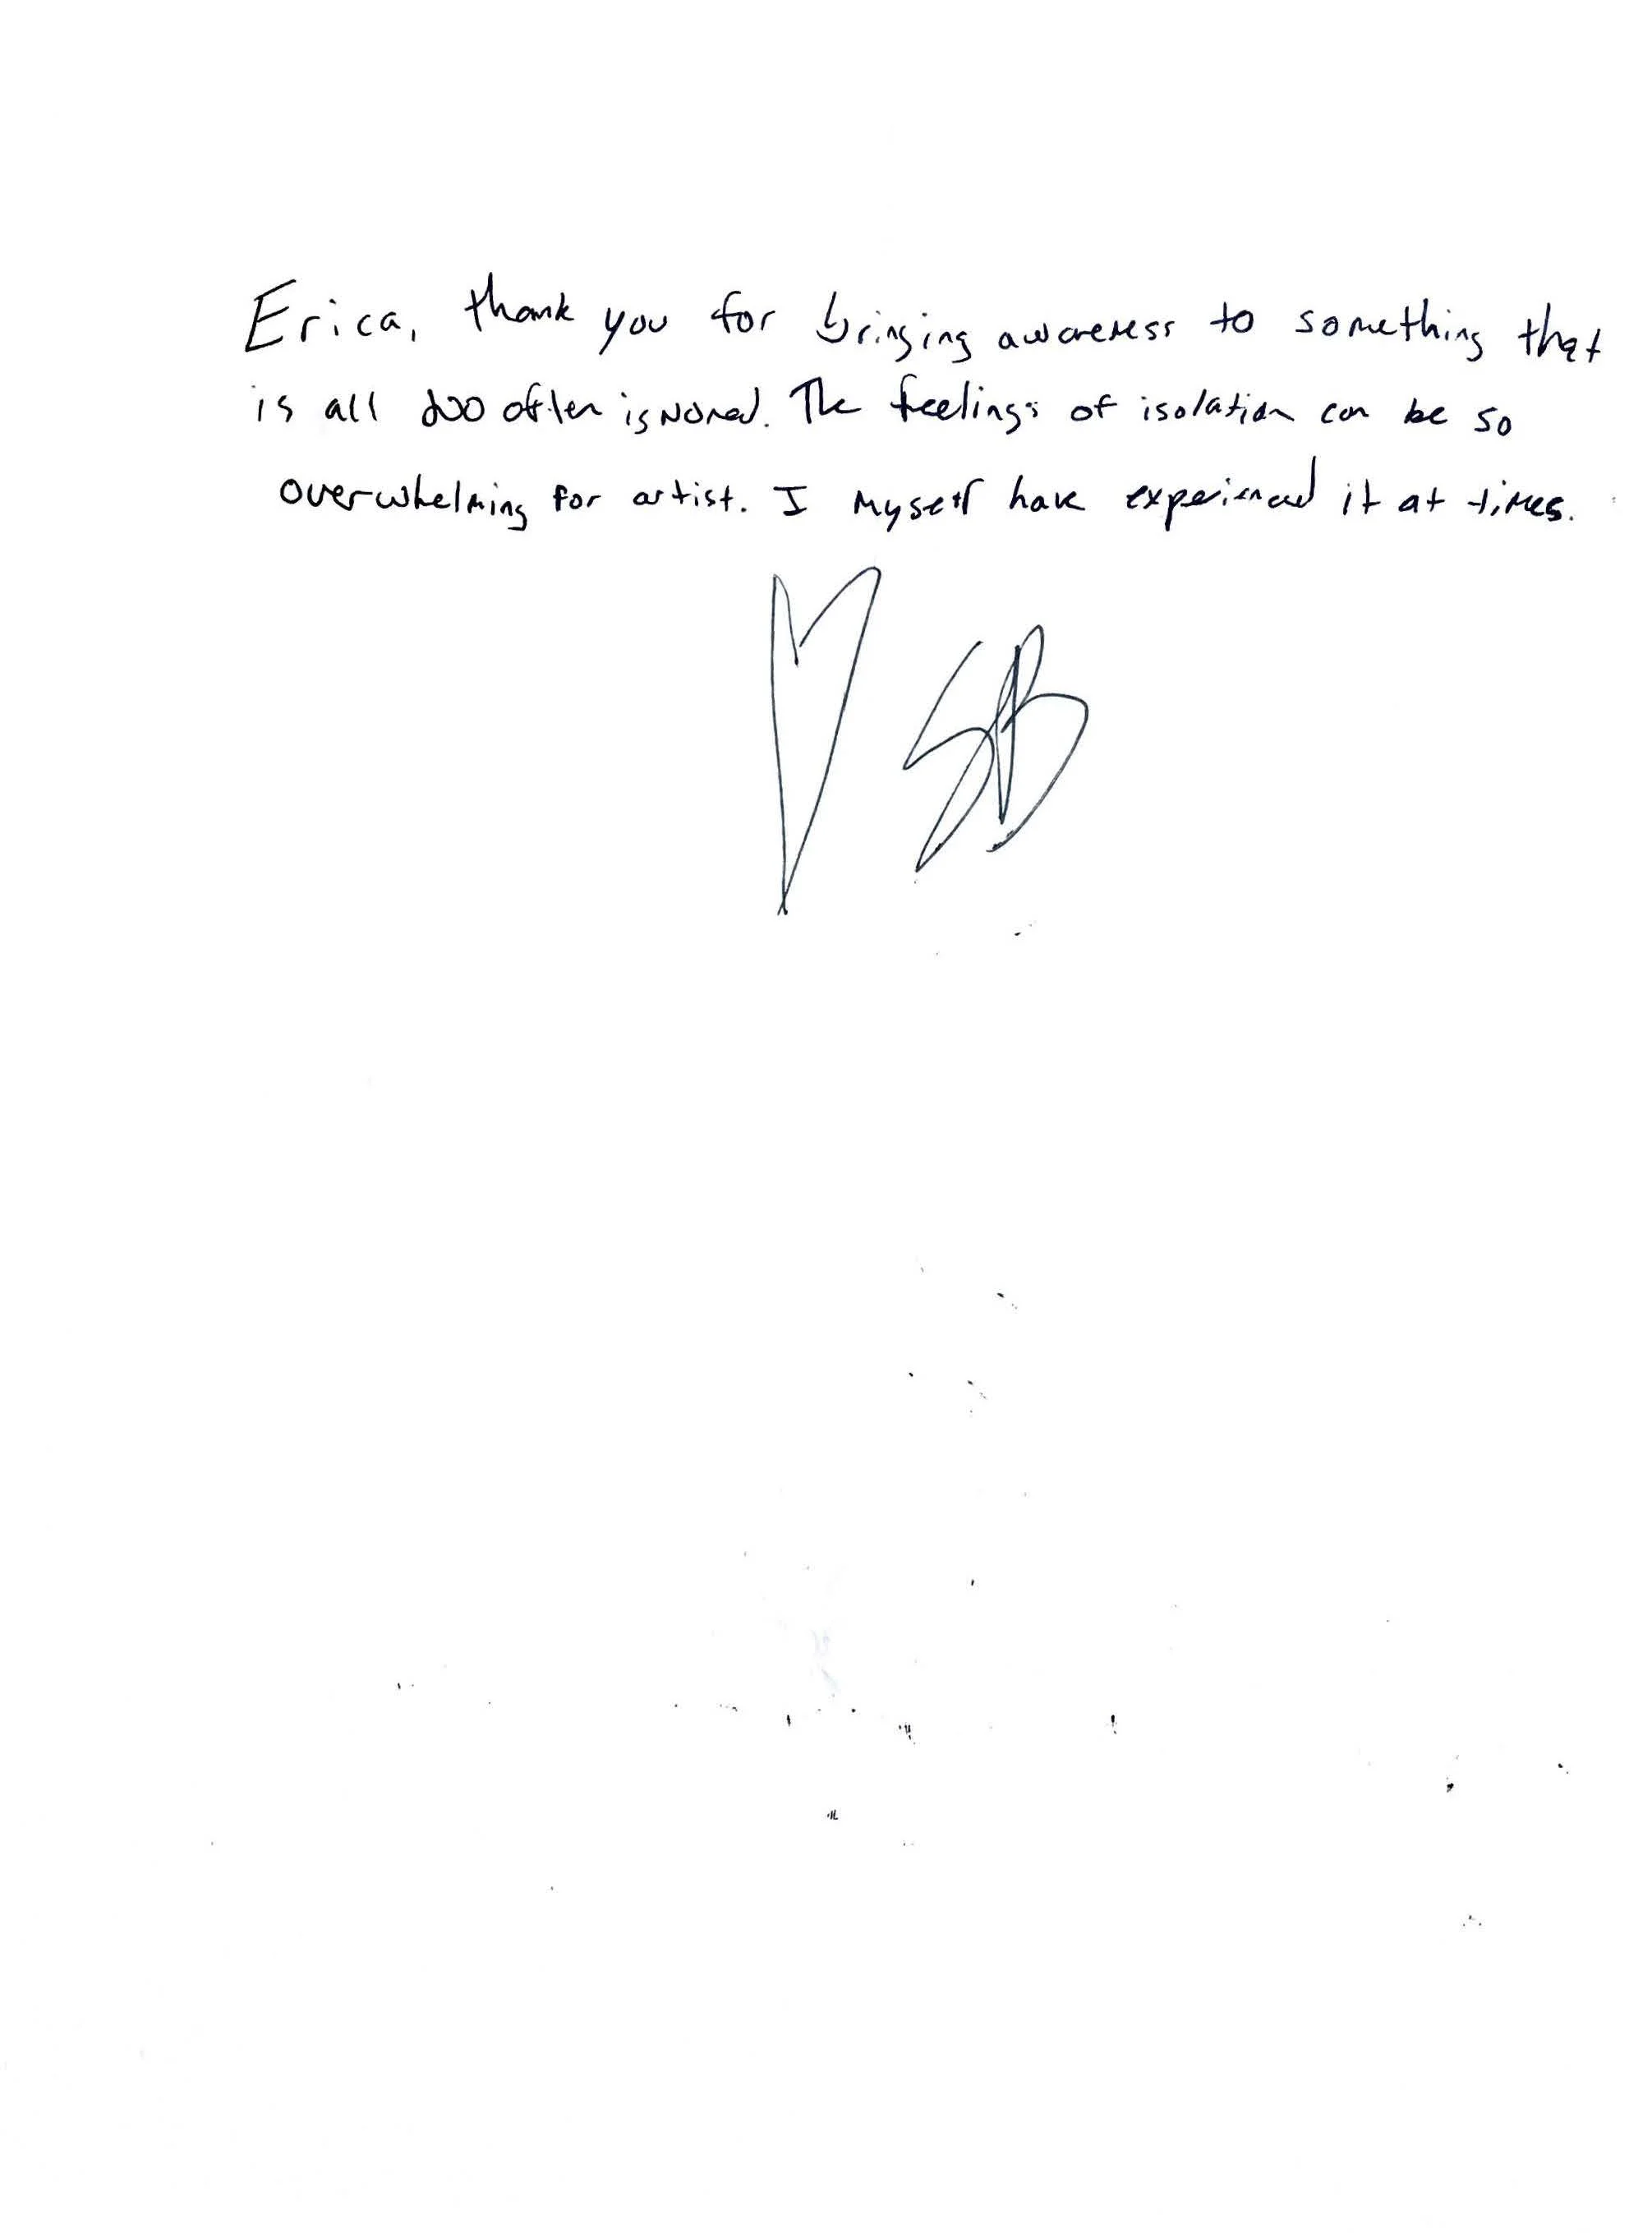 Erica, thank you for bringing awareness to something that
is all too often ignored. The feelings of isolation can be so
overwhelming for artist. I myself have experienced it at times.
SB